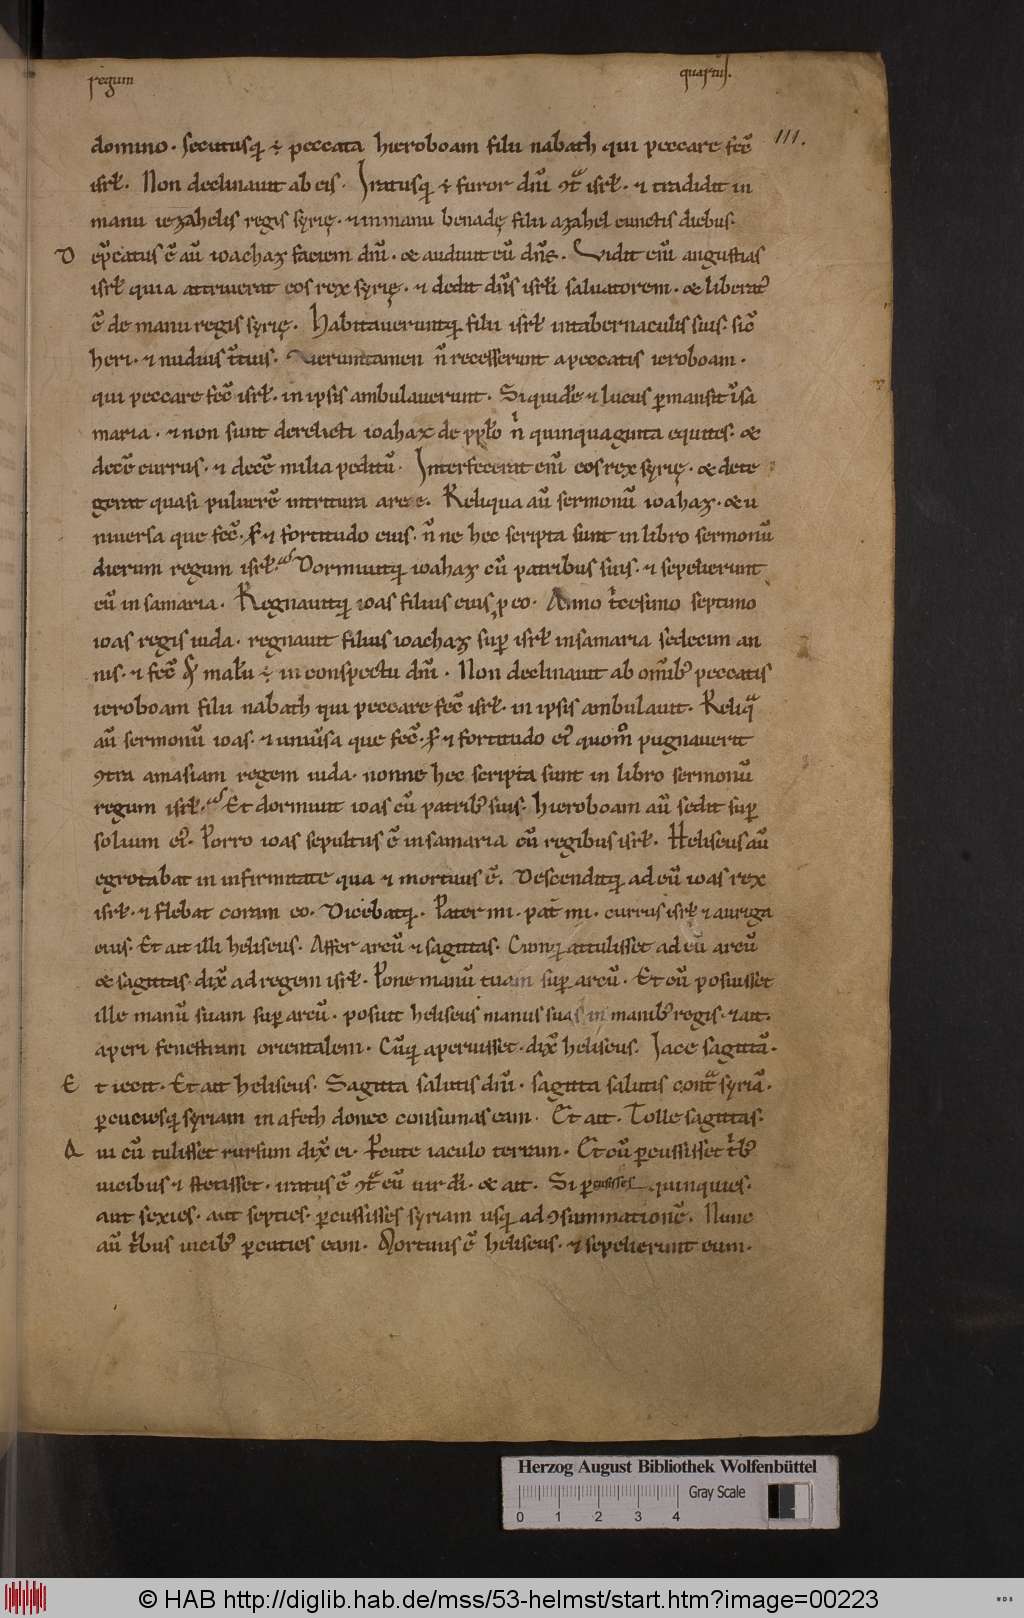 regum quartus.
111.
domino. secutusq; ē peccata hieroboam filii nabath qui peccare fec̄
isrł. Non declinauit ab eis. Iratusq; ē furor dn̄i ꝯtͣ isrł. & tradidit in
manu iezahelis regis syrię. & in manu benadę filii azahel cunctis diebus.
D ep̄catus ē aū ioachaz faciem dn̄i. & audiuit eū dn̄s. Vidit em̄ angustias
isrł quia attriuerat eos rex syrię. & dedit dn̄s isrłi saluatorem. & liberatꝰ
ē de manu regis syrię. Habitaueruntq; filii isrł in tabernaculis suis. sic̄
heri. & nudius t̄tius. Veruntamen n̄ recesserunt a peccatis ieroboam.
qui peccare fec̄ isrł. in ipsis ambulauerunt. Siquidē & lucus ꝑmansit in sa
maria. & non sunt derelicti ioahaz de ppło n̄ quinquaginta equites. &
decē currus. & decē milia peditū. Interfecerat em̄ eos rex syrię. & rede
gerat quasi puluerē in tritura aree. Reliqua aū sermonū ioahaz. & u
niuersa que fec̄. s; & fortitudo eius. n̄ne hec scripta sunt in libro sermonū
dierum regum isrł. Dormiuitq; ioahaz cū patribus suis. & sepelierunt
eū in samaria. Regnauitq; ioas filius eius ꝓ eo. Anno t̄cesimo septimo
ioas regis iuda. regnauit filius ioachaz suꝑ isrł in samaria sedecim an
nis. & fec̄ qd malū ē in conspectu dn̄i. Non declinauit ab om̄ibꝰ peccatis
ieroboam filii nabath qui peccare fec̄ isrł. in ipsis ambulauit. Reliqͣ
aū sermonū ioas. & uniūsa que fec̄. s; & fortitudo eiꝰ quom̊ pugnauerit
ꝯtra amasiam regem iuda. nonne hec scripta sunt in libro sermonū
regum isrł. Et dormiuit ioas cū patribꝰ suis. hieroboam aū sedit suꝑ
solium eiꝰ. Porro ioas sepultus ē in samaria cū regibus isrł. Heliseus aū
egrotabat in infirmitate qua & mortuus ē. Descenditq; ad eū ioas rex
isrł. & flebat coram eo. Dicebatq;. Pater mi. pat̄ mi. currus isrł & auriga
eius. Et ait illi heliseus. Affer arcū & sagittas. Cumq; attulisset ad eū arcū
& sagittas. dix̄ ad regem isrł. Pone manū tuam suꝑ arcū. Et cū posuisset
ille manū suam suꝑ arcū. posuit heliseus manus suas in manibꝰ regis. & ait.
aperi fenestram orientalem. Cūq; aperuisset. dix̄ heliseus. Iace sagittā.
E t iecit. Et ait heliseus. Sagitta salutis dn̄i. sagitta salutis contͣ syriā.
ꝑcuciesq; syriam in afeth donec consumas eam. Et ait. Tolle sagittas.
Q ui cū tulisset rursum dix̄ ei. Percute iaculo terram. Et cū ꝑcussisset t̄bꝰ
uicibus & stetisset. iratus ē ꝯtͣ eū uir di. & ait. Si ꝑcussisses quinquies.
aut sexies. aut septies. ꝑcussisses syriam usq; ad ꝯsummationē. Nunc
aū t̄bus uicibꝰ ꝑcuties eam. Mortuus ē heliseus. & sepelierunt eum.
Herzog August Bibliothek Wolfenbüttel
Gray Scale
0 1 2 3 4
© HAB http://diglib.hab.de/mss/53-helmst/start.htm?image=00223